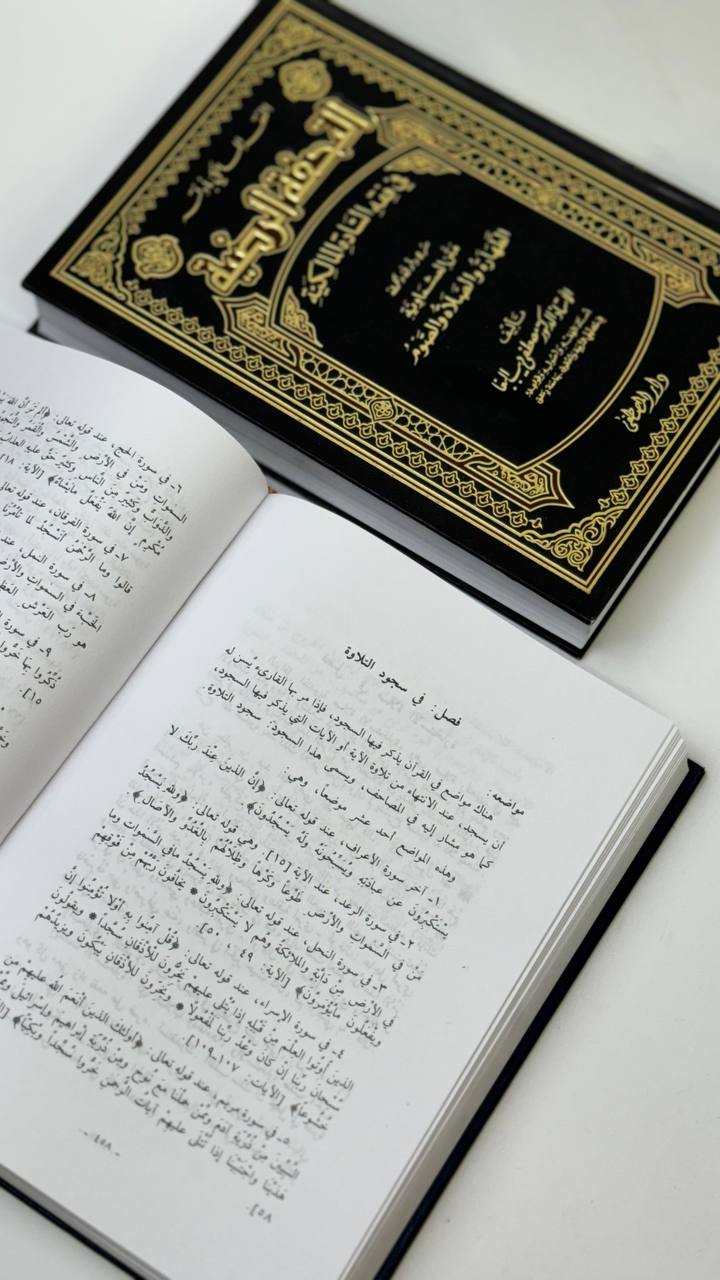 التحفة الرضية
في فقه السادة المالكية
الطهارة والصلاة والصوم
تأليف
فصل: في سجود التلاوة
مواضعه:
هناك مواضع في القرآن يذكر فيها السجود، فإذا مر بها القارىء يُسن له
أن يسجد، عند الانتهاء من تلاوة الآية أو الآيات التي يذكر فيها السجود،
كما هو مشار إليه في المصاحف، ويسمى هذا السجود: سجود التلاوة.
وهذه المواضع أحد عشر موضعاً، وهي:
١- آخر سورة الأعراف، عند قوله تعالى: ﴿إنَّ الذينَ عِنْدَ رَبِّكَ لا
يَسْتَكْبِرُونَ عن عبادَتِهِ ويُسَبِّحُونَهُ ولَهُ يَسْجُدُونَ﴾.
٢- في سورة الرعد، عند الآية [١٥] وهي قوله تعالى: ﴿وللهِ يَسْجُدُ
مَنْ في السَّمواتِ والأرْضِ طَوْعاً وكَرْهاً وظِلالُهُمْ بالغُدُوِّ والآصالِ﴾.
٣- في سورة النحل، عند قوله تعالى: ﴿وللهِ يَسْجُدُ مافي السَّمواتِ وما
في الأرْضِ مِنْ دَابَّةٍ والملائكةُ وهم لا يَسْتَكْبِرُونَ * يخافُونَ رَبَّهم مِنْ فَوْقِهِمْ
ويَفْعَلُونَ مايُؤْمَرُونَ﴾ [الآية: ٤٩ ، ٥٠].
٤- في سورة الإسراء، عند قوله تعالى: ﴿قُلْ آمِنُوا بِهِ أوْلا تُؤْمِنُوا إنَّ
الذينَ أُوتُوا العِلْمَ مِنْ قَبْلِهِ إذا يُتْلَى عليهِمْ يَخِرُّونَ للأذْقانِ سُجَّداً * ويقولُونَ
سُبحانَ رَبِّنا إنْ كانَ وَعْدُ رَبِّنا لَمَفْعُولاً * ويَخِرُّونَ للأذْقانِ يَبْكُونَ ويَزِيدُهُمْ
خُشُوعاً﴾ [الآيات: ١٠٧-١٠٩].
٥- في سورة مريم، عند قوله تعالى: ﴿أولئكَ الذينَ أنْعَمَ اللهُ عليهِمْ مِنَ
النَّبِيِّينَ مِنْ ذُرِّيَّةِ آدَمَ ومِمَّنْ حَمَلْنا مَعَ نُوحٍ ومِنْ ذُرِّيَّةِ إبراهيمَ وإسرائيلَ ومِمَّنْ
هَدَيْنا واجْتَبَيْنا إذا تُتْلَى عليهِمْ آياتُ الرَّحْمنِ خَرُّوا سُجَّداً وبُكِيّاً﴾
٥٨].
-٤٥٨-
٦- في سورة الحج، عند قوله تعالى: ﴿ألم تَرَ أنَّ اللهَ
السَّمواتِ ومَنْ في الأرْضِ والشَّمْسُ والقَمَرُ
والدَّوابُّ وكَثيرٌ مِنَ النَّاسِ وكَثيرٌ حَقَّ عليهِ العذابُ
مُكْرِمٍ إنَّ اللهَ يَفْعَلُ مايَشَاءُ﴾ [الآية: ١٨]
٧- في سورة الفرقان، عند قوله تعالى
قالوا وما الرَّحْمنُ أنَسْجُدُ لما تَأْمُرُنا
٨- في سورة النمل، عند
في السَّموات والأرْضِ
هو رَبُّ العَرْشِ
٩- في سورة
ذُكِّرُوا بها خَرُّوا
١٥].